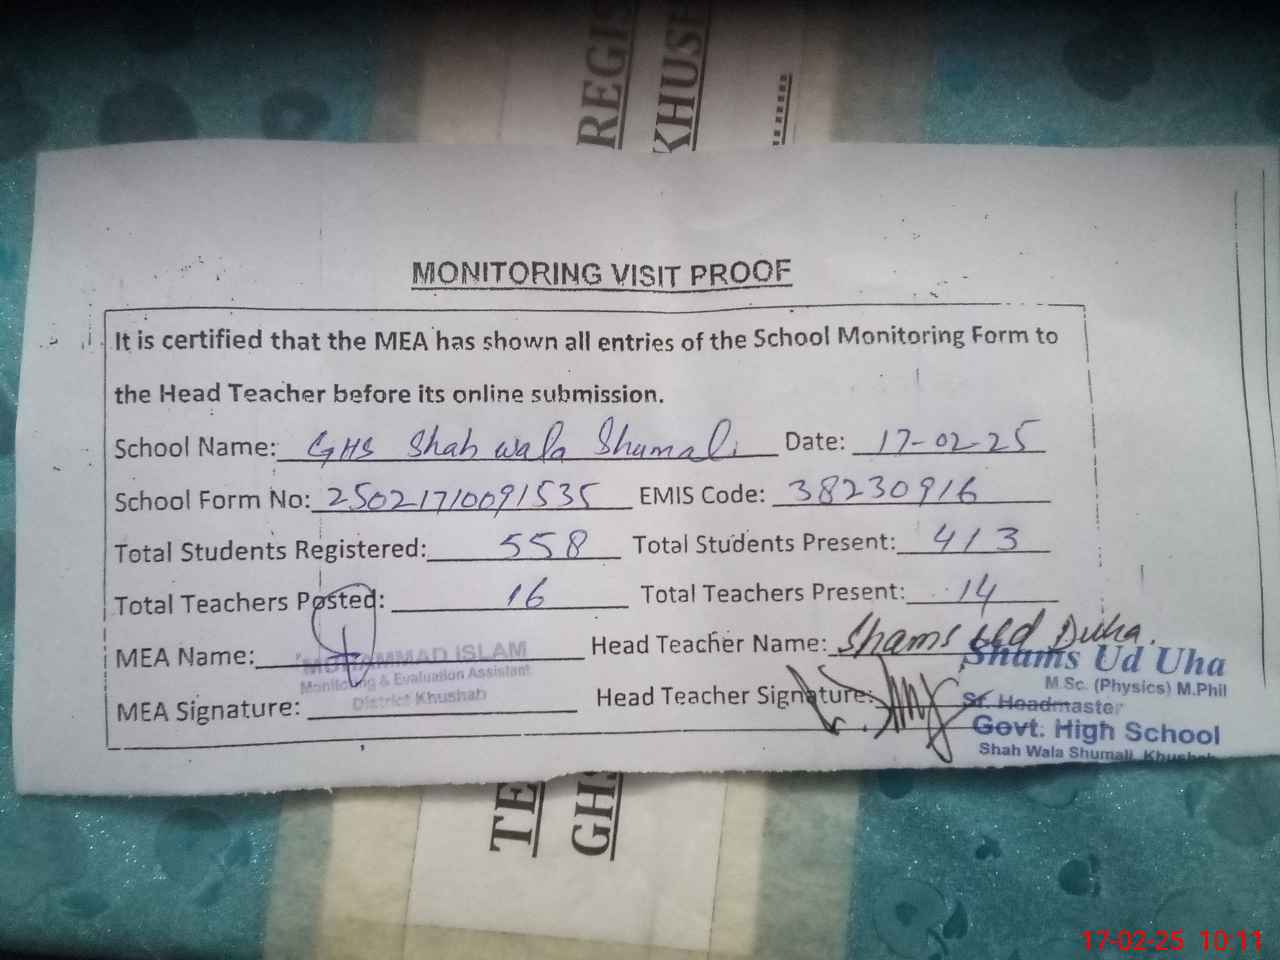 REGIS
KHUSH
MONITORING VISIT PROOF
It is certified that the MEA has shown all entries of the School Monitoring Form to
the Head Teacher before its online submission.
School Name: GHS Shah wala Shumali Date: 17-02-25
School Form No: 25021710091535 EMIS Code: 38230916
Total Students Registered: 558 Total Students Present: 413
Total Teachers Posted: 16 Total Teachers Present: 14
MEA Name: MOHAMMAD ISLAM Head Teacher Name: Shams Ud Duha.
Monitoring & Evaluation Assistant
District Khushab
MEA Signature: Head Teacher Signature:
Shams Ud Uha
M.Sc. (Physics) M.Phil
Sr. Headmaster
Govt: High School
Shah Wala Shumali, Khushab
TE
GHS
17-02-25 10:11